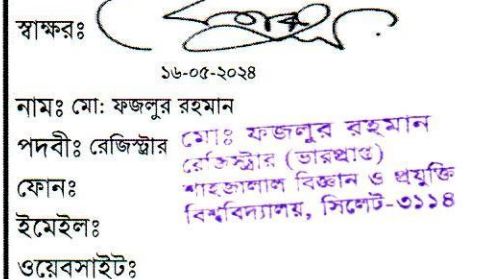 স্বাক্ষরঃ
১৬-০৫-২০২৪
নামঃ মো: ফজলুর রহমান
পদবীঃ রেজিস্ট্রার
ফোনঃ
ইমেইলঃ
ওয়েবসাইটঃ
মোঃ ফজলুর রহমান
রেজিস্ট্রার (ভারপ্রাপ্ত)
শাহজালাল বিজ্ঞান ও প্রযুক্তি
বিশ্ববিদ্যালয়, সিলেট-৩১১৪